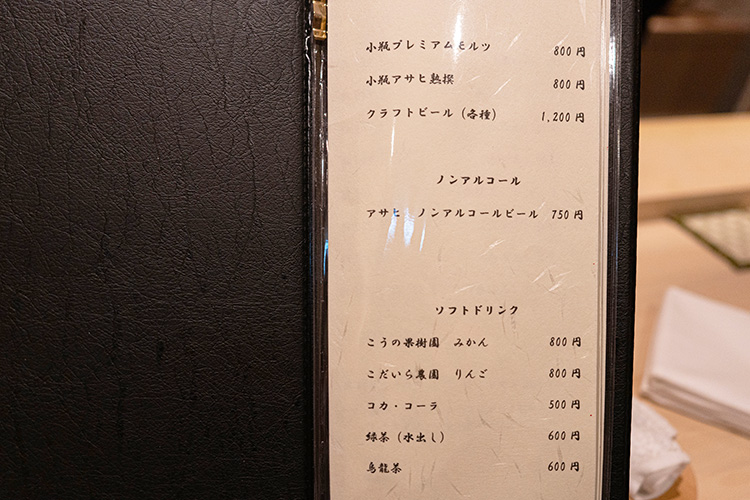 小瓶プレミアムモルツ 800円
小瓶アサヒ熟撰 800円
クラフトビール（各種） 1,200円
ノンアルコール
アサヒ ノンアルコールビール 750円
ソフトドリンク
こうの果樹園 みかん 800円
こだいら農園 りんご 800円
コカ・コーラ 500円
緑茶（水出し） 600円
烏龍茶 600円